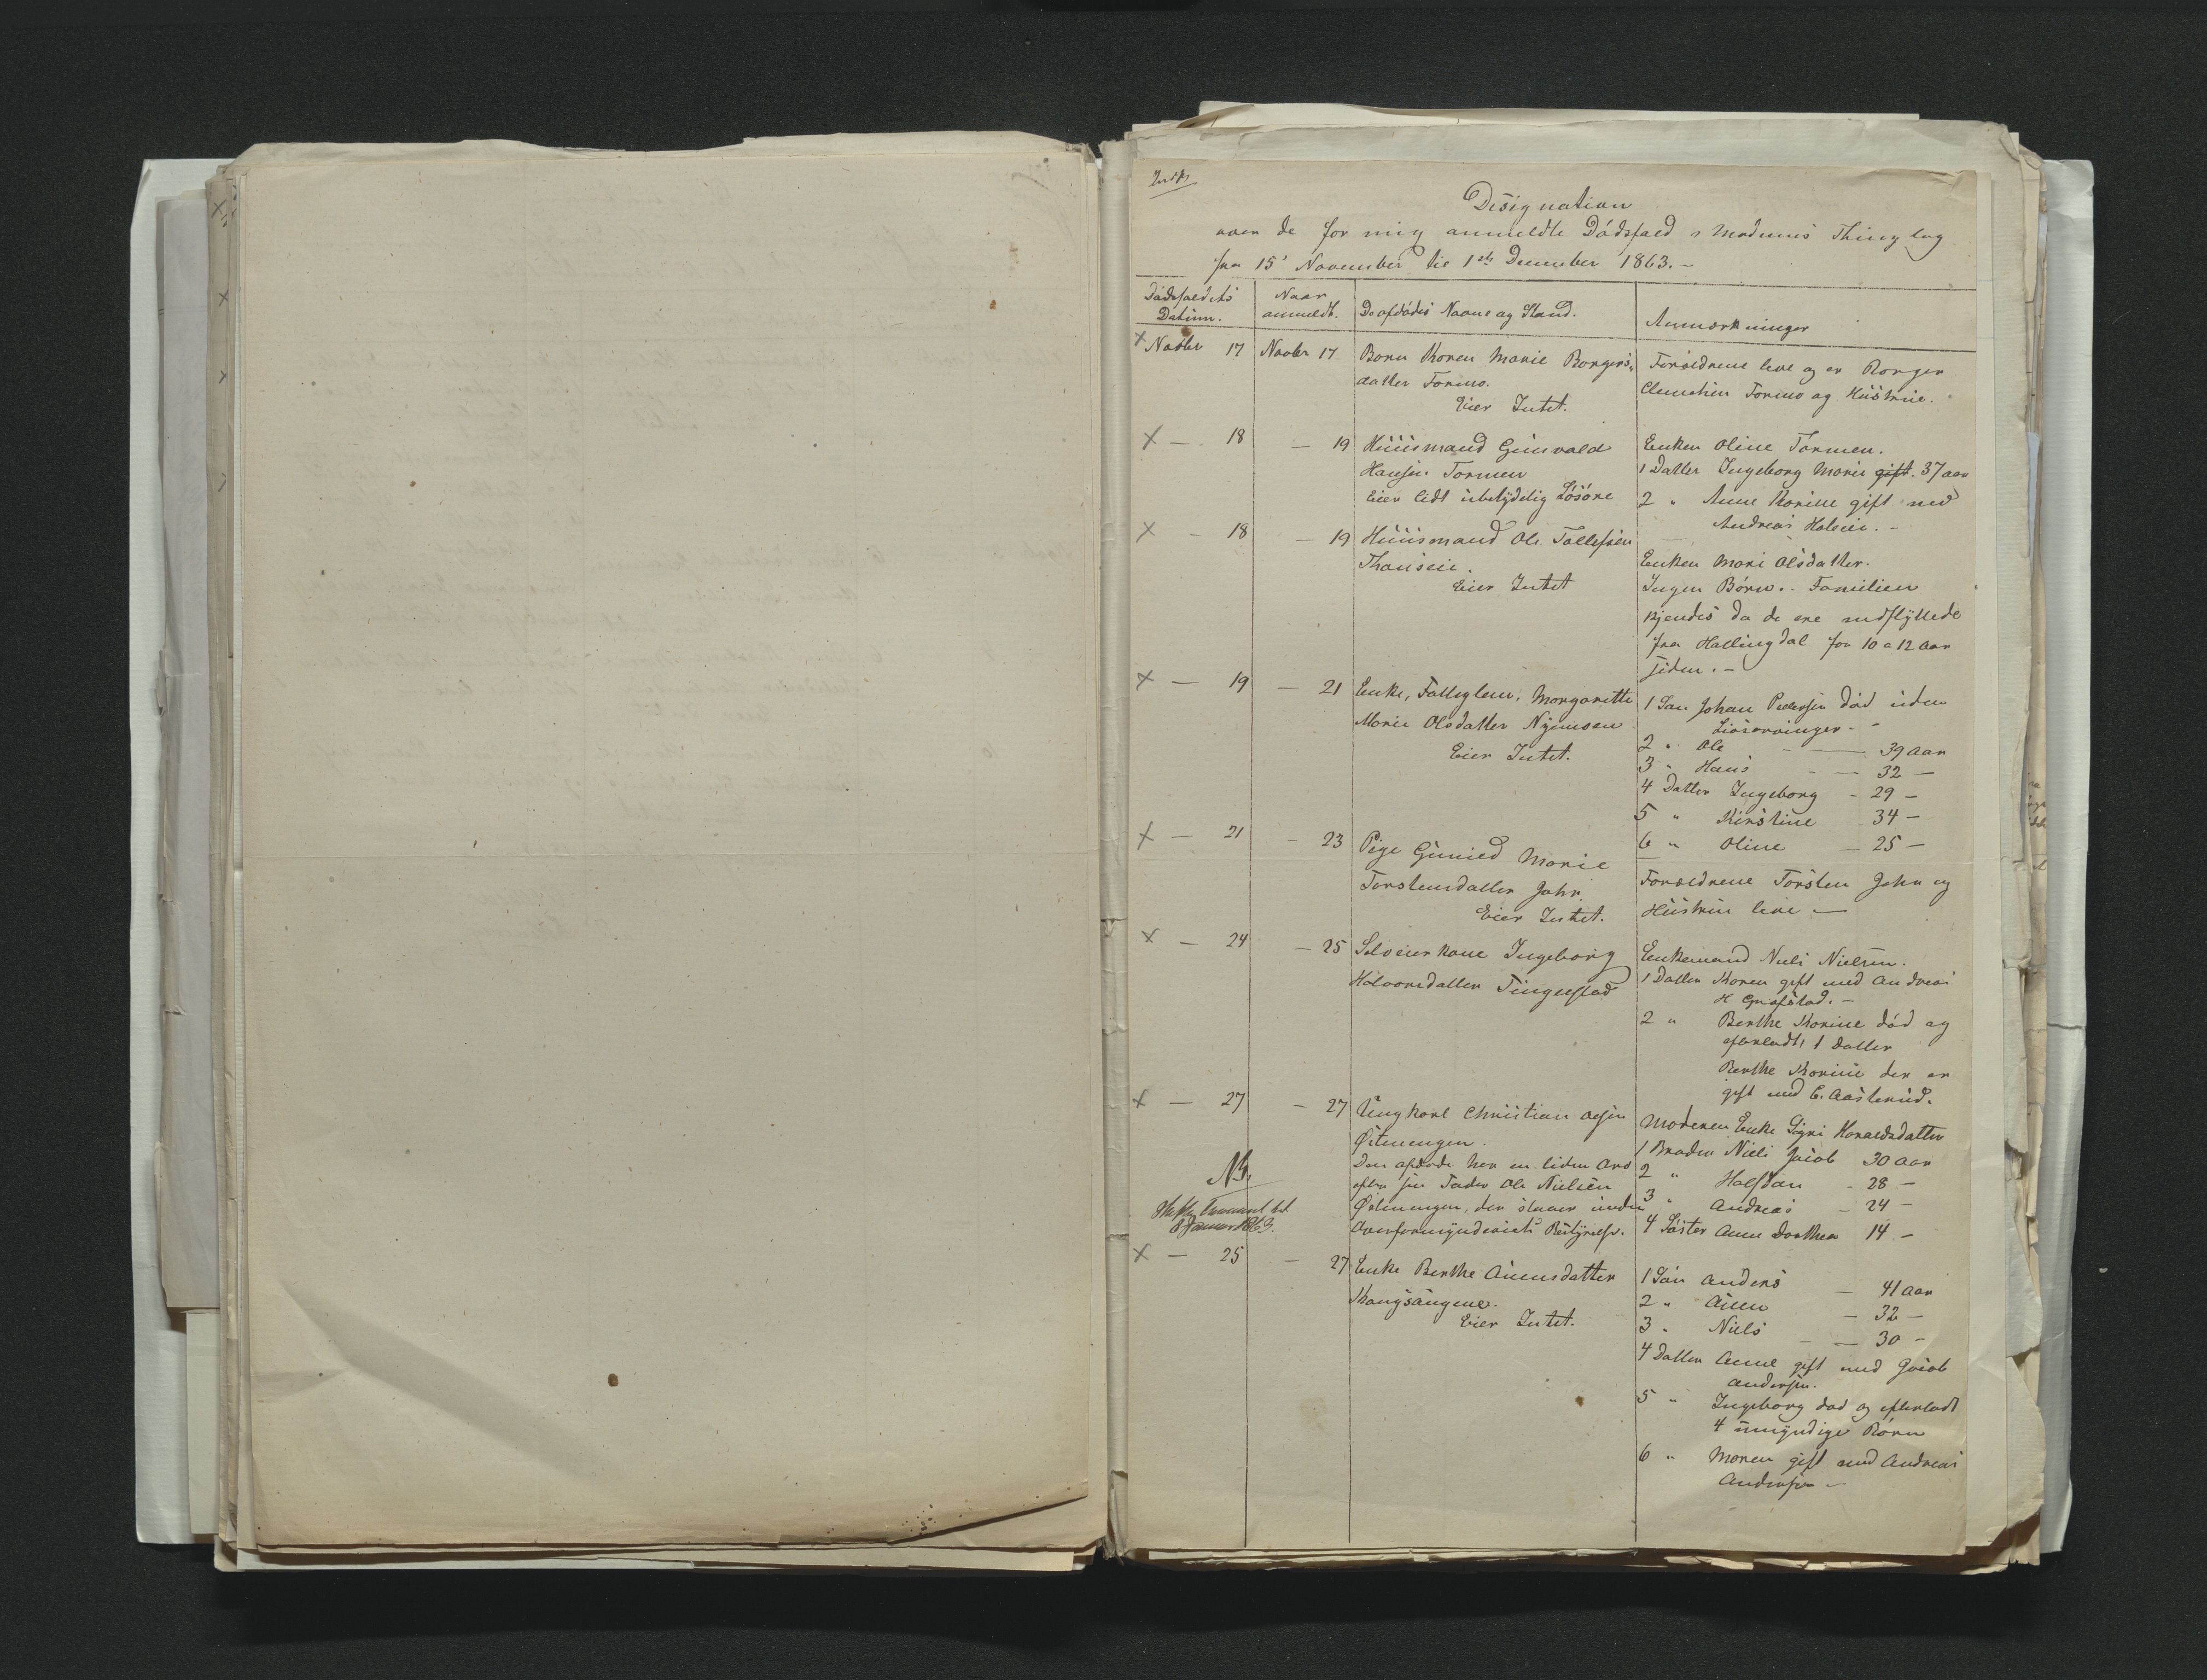 Designation
over de for mig anmeldte Dödsfald i Modums Thinglag
fra 15' November til 1ste December 1863.-
Dödsfaldets Datum.
Naar anmeldt.
De afdödes Navne og Stand.
Anmærkninger
x Novbr 17
Novbr 17
Barn Karen Marie Borgers-
datter Formo.
Eier Intet.
Forældrene leve og er Borger
Clemetsen Formo og Hüstrue.
x - 18
- 19
Hüüsmand Günvald
Hansen Formen
Eier lidt übetydelig Lösöre
Enken Oline Formen.
1 Datter Ingeborg Marie gift. 37 aar
2 " Anne Karine gift med
Andreas Halseie.-
x - 18
- 19
Hüüsmand Ole Tollefsen
Eier Intet
Enken Mari Olsdatter.
Ingen Börn.- Familien
kjendes da de ere indflyttede
fra Hallingdal for 10 a 12 aar
siden.-
x - 19
- 21
Enke, Fattiglem, Margarethe
Marie Olsdatter Nymoen
Eier Intet.
1 Sön Johan Pedersen död üden
Livsarvinger.-
2 " Ole - 39 aar
3 " Hans - 32 -
4 Datter Ingeborg - 29 -
5 " Kirstine 34 -
6 " Oline - 25 -
x - 21
- 23
Pige Günild Marie
Torstensdatter Jahr.
Eier Intet.
Forældrene Torsten Jahr og
Hüstrüe leve.-
x - 24
- 25
Selveierkone Ingeborg
Halvorsdatter Tingelstad
Enkemand Niels Nielsen.
1 Datter Karen gift med Andreas
H Gravstad.-
2 " Berthe Karine död og
efterladt 1 Datter
Berthe Karine der er
gift med C. Aasterüd.
x - 27
- 27
Üngkarl Christian Olsen
Östenengen.
Den afdöde har en liden Arv
efter sin Fader Ole Nielsen
Östenengen, der staaer ünder
Overformynderiets Bestyrelse.
NB.
8 Januar 1863.
Moderen Enke Sigri Haraldsdatter
1 Broder Niels Jacob 30 aar
2 " Halfdan - 28 -
3 " Andreas - 24 -
4 Söster Anne Dorthea 14 -
x - 25
- 27
Enke Berthe Auensdatter
Eier Intet.
1 Sön Anders - 41 aar
2 " Auen - 32 -
3 " Niels - 30 -
4 Datter Anne gift med Jacob
Andersen.
5 " Ingeborg död og efterladt
4 ümyndige Börn
6 " Maren gift med Andreas
Andersen -